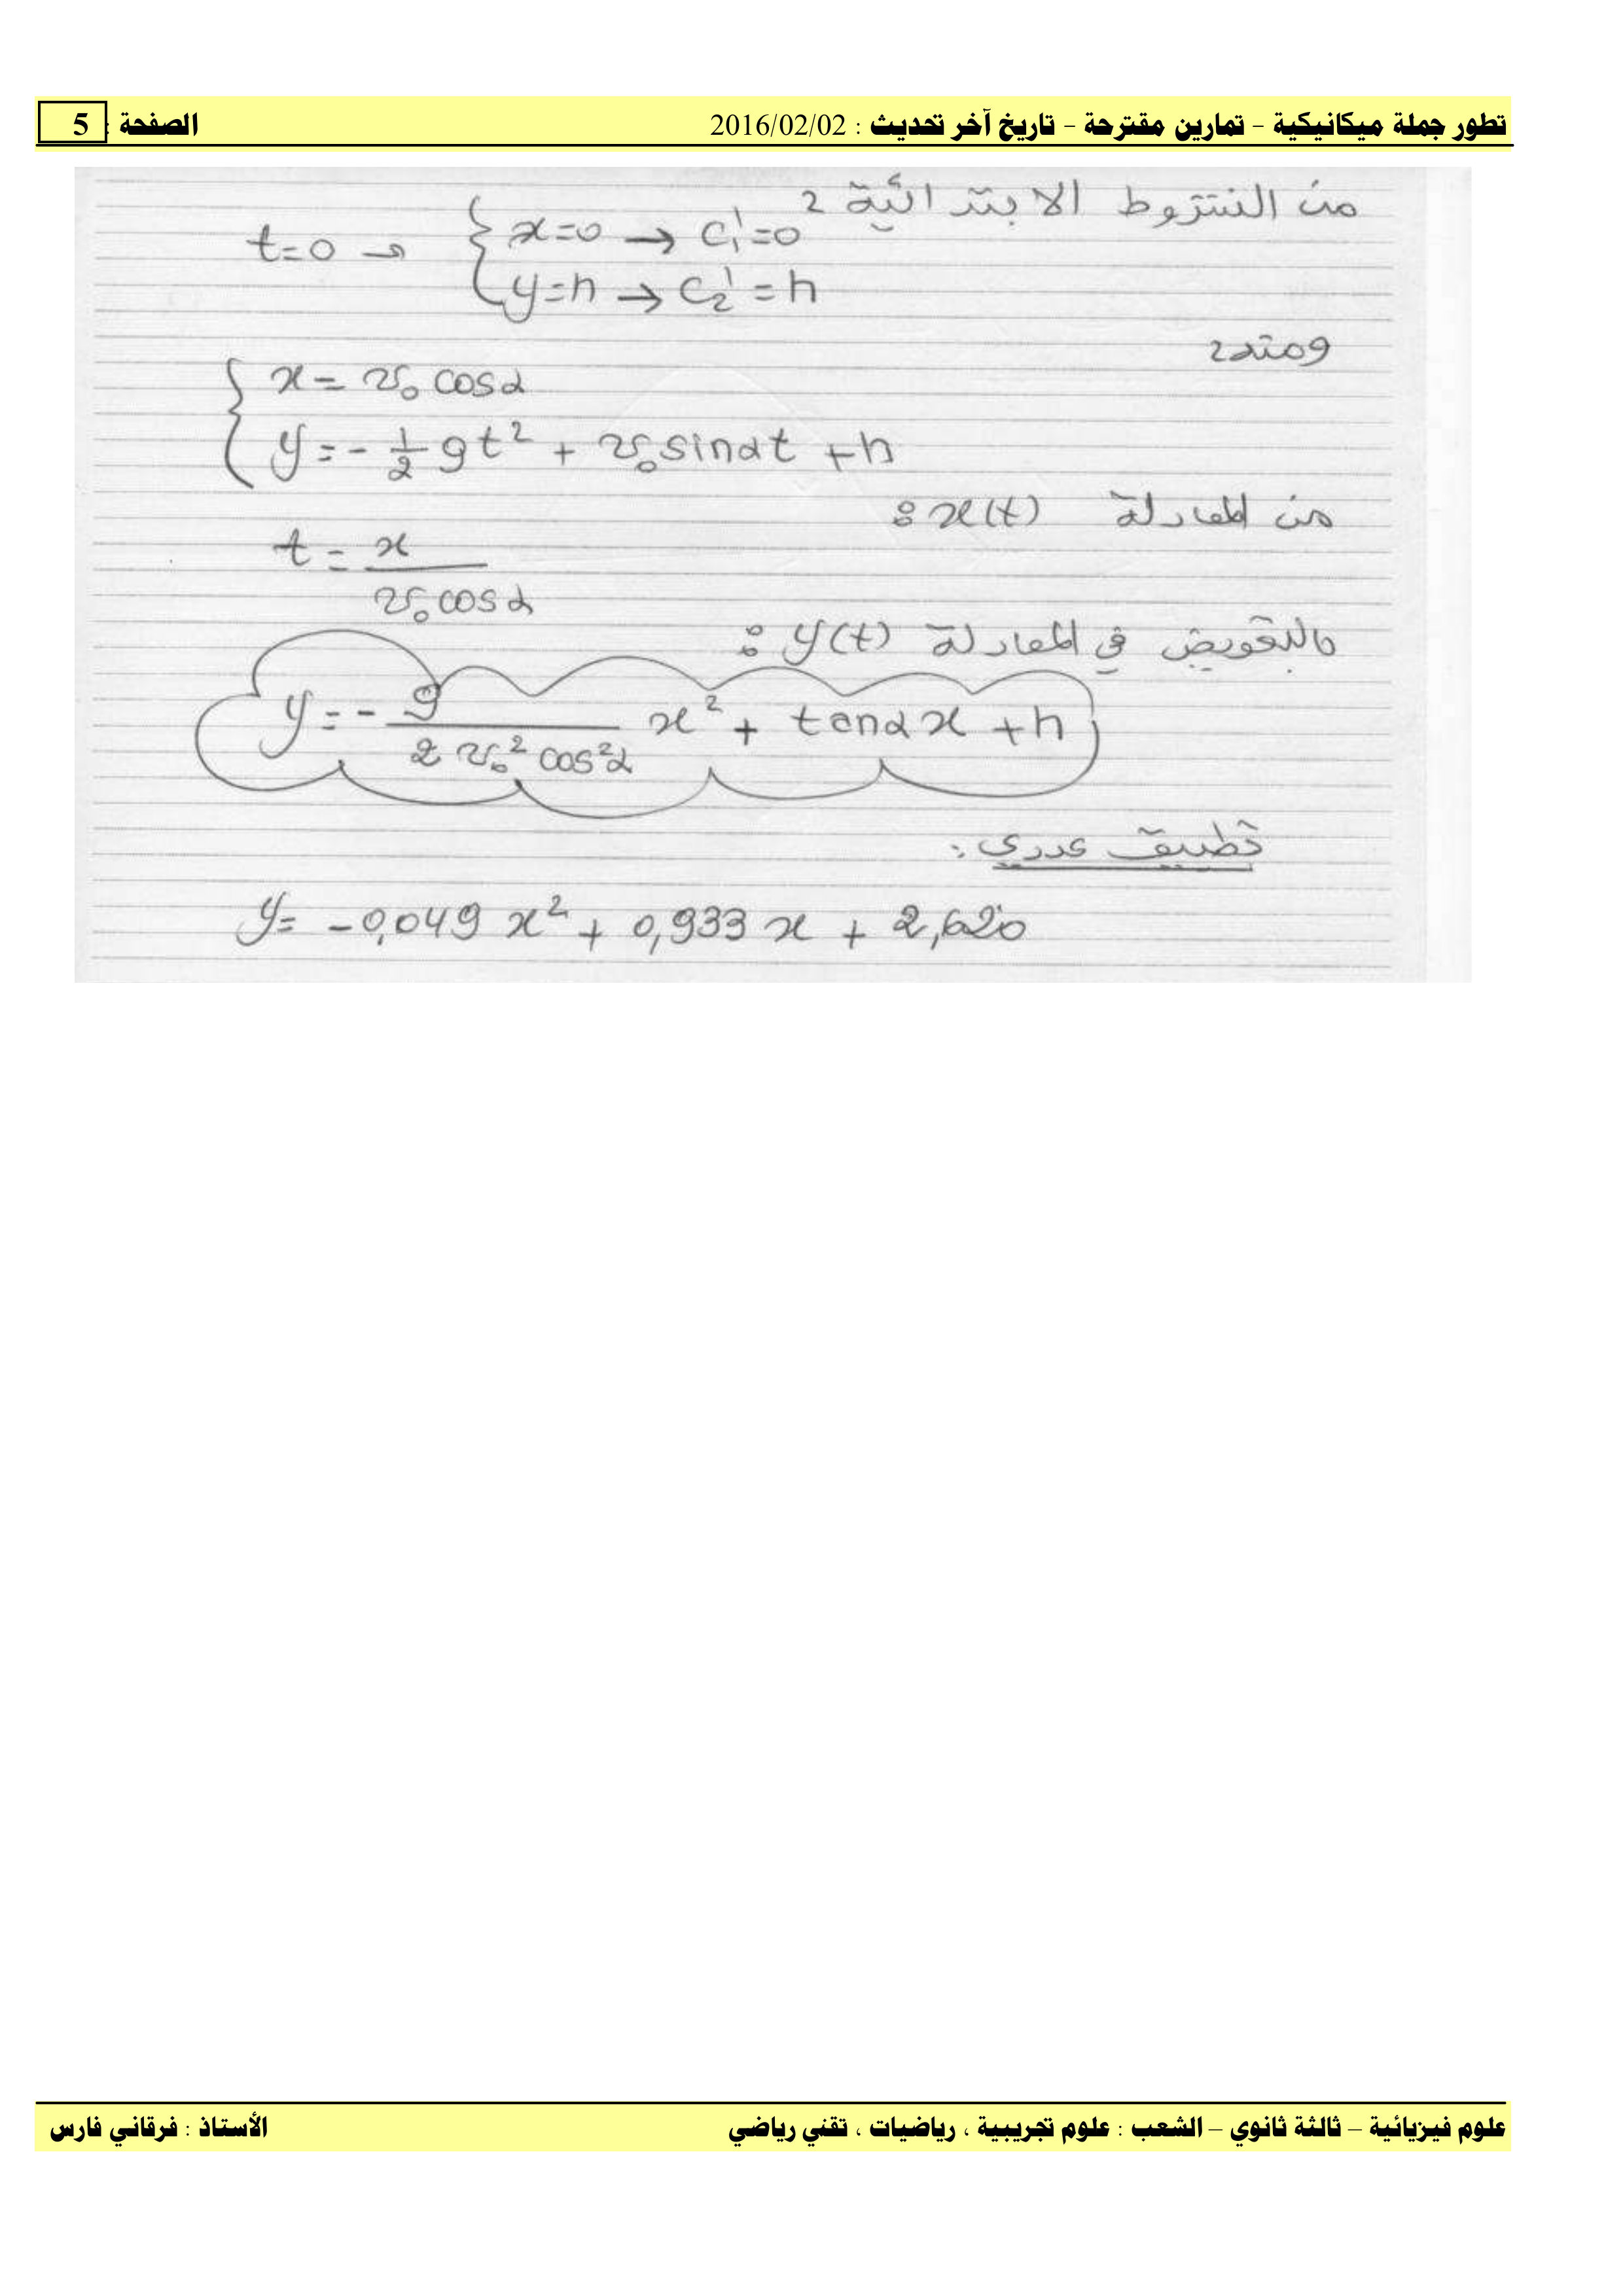 تطور جملة ميكانيكية – تمارين مقترحة – تاريخ آخر تحديث : 2016/02/02 الصفحة : 5
من الشروط الابتدائية :
t=0 → { x=0 → C₁'=0
y=h → C₂'=h
ومنه :
{ x = v₀ cosα
y = - 1/2 g t² + v₀ sinα t + h
من المعادلة x(t) :
t = x / v₀ cosα
بالتعويض في المعادلة y(t) :
y = - g / 2 v₀² cos²α x² + tanα x + h
تطبيق عددي :
y = -0,049 x² + 0,933 x + 2,620
علوم فيزيائية – ثالثة ثانوي – الشعب : علوم تجريبية ، رياضيات ، تقني رياضي الأستاذ : فرقاني فارس